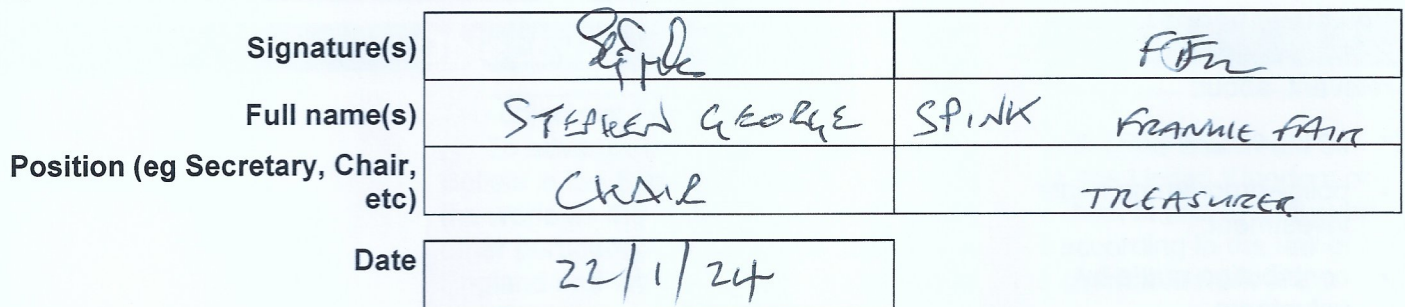 Signature(s)
Full name(s) STEPHEN GEORGE SPINK FRANKIE FAIR
Position (eg Secretary, Chair, etc) CHAIR TREASURER
Date 22/1/24